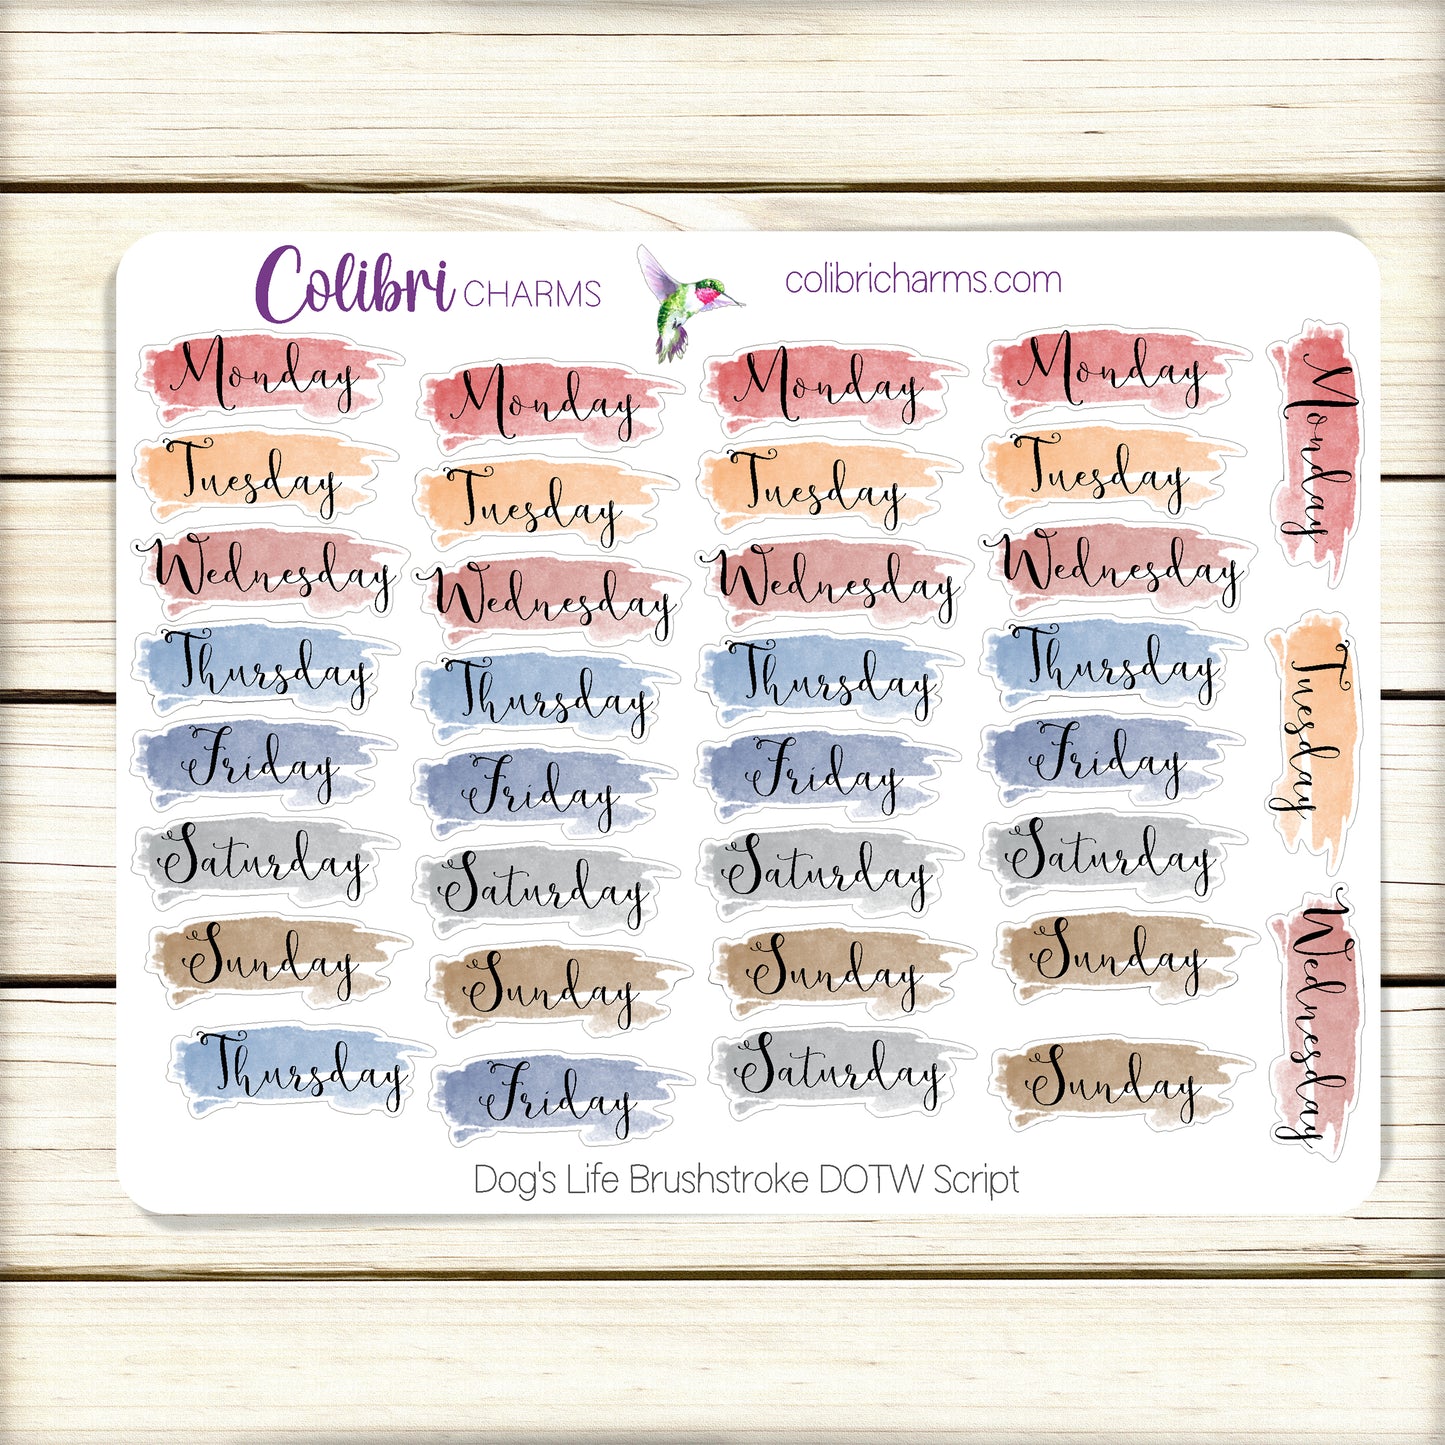 Colibri CHARMS
colibricharms.com
Monday
Tuesday
Wednesday
Thursday
Friday
Saturday
Sunday
Thursday
Monday
Tuesday
Wednesday
Thursday
Friday
Saturday
Sunday
Friday
Monday
Tuesday
Wednesday
Thursday
Friday
Saturday
Sunday
Saturday
Monday
Tuesday
Wednesday
Thursday
Friday
Saturday
Sunday
Sunday
Monday
Tuesday
Wednesday
Dog's Life Brushstroke DOTW Script